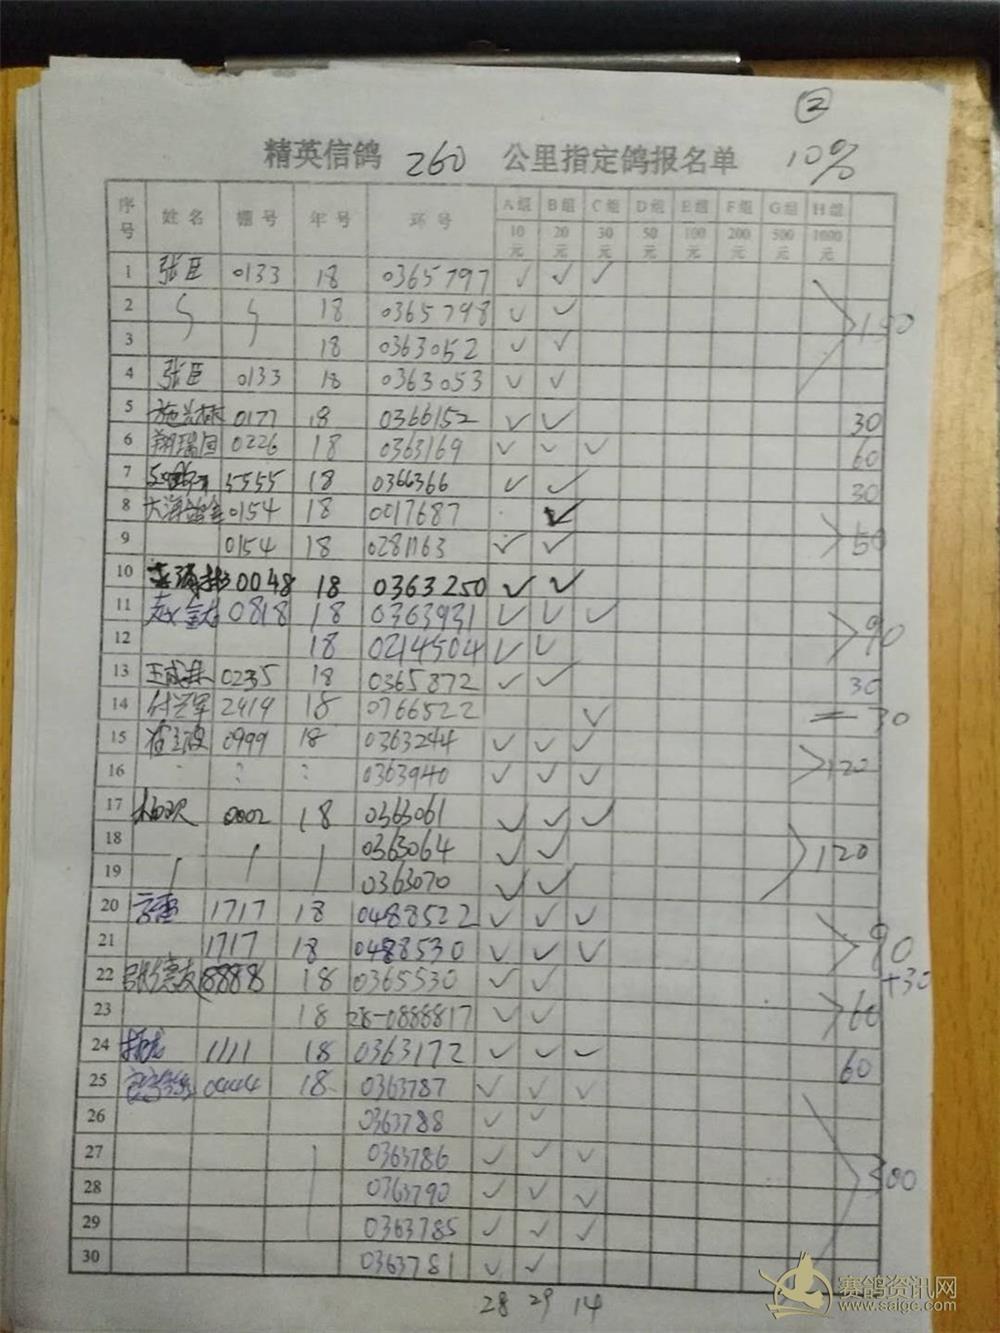 ②
精英信鸽 260 公里指定鸽报名单 10%
序号 姓名 棚号 年号 环号 A组 B组 C组 D组 E组 F组 G组 H组
10元 20元 30元 50元 100元 200元 500元 1000元
1 张臣 0133 18 0365797 ✓ ✓ ✓
2 18 0365798 ✓ ✓
3 18 0363052 ✓ ✓
4 张臣 0133 18 0363053 ✓ ✓
5 0177 18 0366152 ✓ ✓ 30
6 翔瑞国 0226 18 0363169 ✓ ✓ ✓ 60
7 5555 18 0366366 ✓ ✓ 30
8 0154 18 0017687 ✓
9 0154 18 0281163 ✓ ✓ 50
10 0048 18 0363250 ✓ ✓
11 0818 18 0363931 ✓ ✓ ✓
12 18 0214504 ✓ ✓ 90
13 0235 18 0365872 ✓ ✓ 30
14 付兴军 2419 18 0766522 ✓ 30
15 0999 18 0363244 ✓ ✓ ✓
16 0363940 ✓ ✓ ✓ 120
17 0002 18 0363061 ✓ ✓ ✓
18 0363064 ✓ ✓ 120
19 0363070 ✓ ✓
20 1717 18 0488522 ✓ ✓ ✓
21 1717 18 0488530 ✓ ✓ ✓ 90
+30
22 张德友 8888 18 0365530 ✓ ✓
23 18 28-0888817 ✓ ✓ 60
24 1111 18 0363172 ✓ ✓ ✓ 60
25 0444 18 0363787 ✓ ✓ ✓
26 0363788 ✓ ✓
27 0363786 ✓ ✓ ✓
28 0363790 ✓ ✓ ✓ 300
29 0363785 ✓ ✓ ✓
30 0363781 ✓ ✓
28 29 14
赛鸽资讯网
www.saigc.com